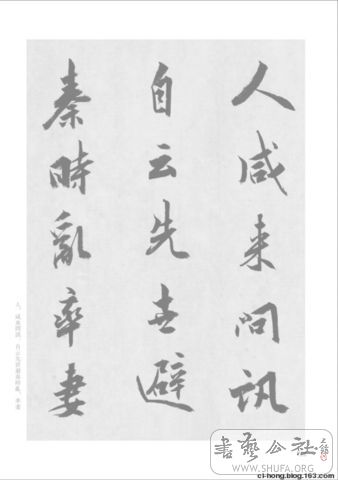 人咸来问讯
自云先世避
秦時亂率妻
人，咸来问讯。自云先世避秦時亂，率妻
書藝公社
WWW.SHUFA.ORG
cl-hong.blog.163.com